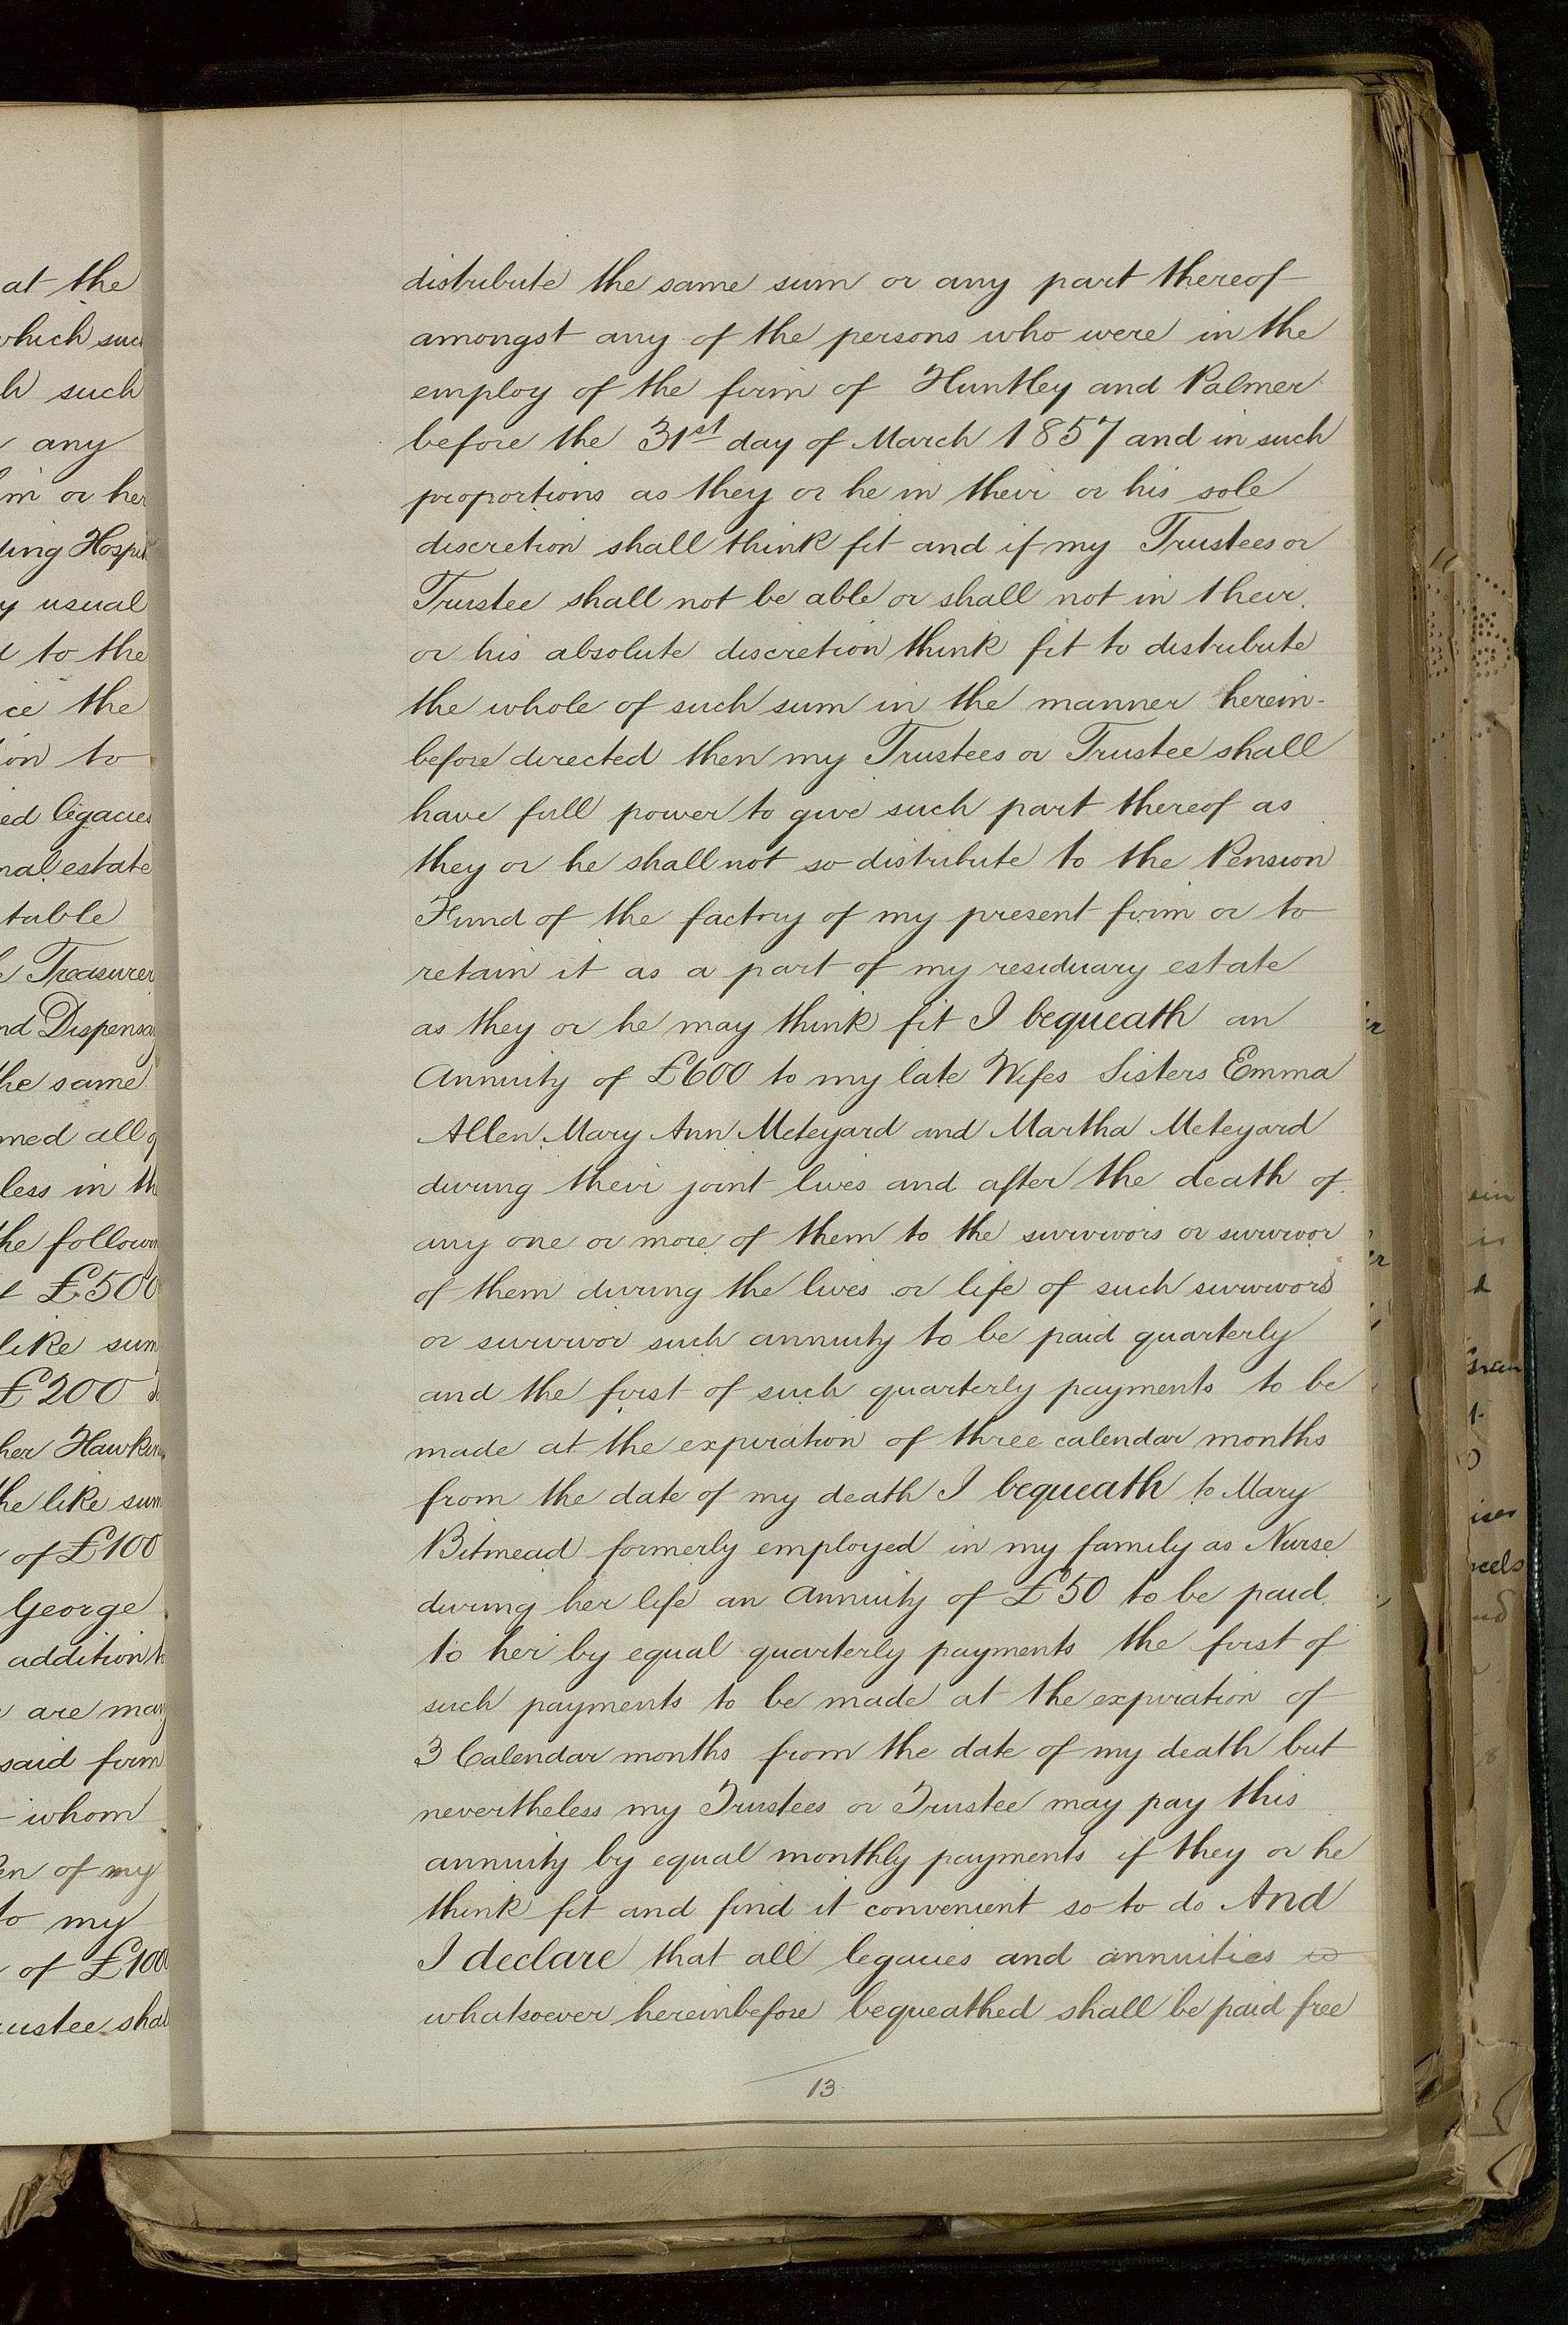 at the
which such
h such
any
him or her
ding Hospit
y usual
d to the
ce the
ion to
ed legacies
nal estate
table
Treasurer
nd Dispensa
the same
med all of
less in th
the followin
£500
like sum
£200
her Hawkin
the like sum
of £100
George
addition to
are may
said firm
whom
en of my
to my
of £100
rustee shal
distribute the same sum or any part thereof
amongst any of the persons who were in the
employ of the firm of Huntley and Palmer
before the 31st day of March 1857 and in such
proportions as they or he in their or his sole
discretion shall think fit and if my Trustees or
Trustee shall not be able or shall not in their
or his absolute discretion think fit to distribute
the whole of such sum in the manner herein-
before directed then my Trustees or Trustee shall
have full power to give such part thereof as
they or he shall not so distribute to the Pension
Fund of the factory of my present firm or to
retain it as a part of my residuary estate
as they or he may think fit I bequeath an
Annuity of £600 to my late Wifes Sisters Emma
Allen Mary Ann Meteyard and Martha Meteyard
during their joint lives and after the death of
any one or more of them to the survivors or survivor
of them during the lives or life of such survivors
or survivor such annuity to be paid quarterly
and the first of such quarterly payments to be
made at the expiration of three calendar months
from the date of my death I bequeath to Mary
Bitmead formerly employed in my family as Nurse
during her life an Annuity of £50 to be paid
to her by equal quarterly payments the first of
such payments to be made at the expiration of
3 Calendar months from the date of my death but
nevertheless my Trustees or Trustee may pay this
annuity by equal monthly payments if they or he
think fit and find it convenient so to do And
I declare that all legacies and annuities
whatsoever hereinbefore bequeathed shall be paid free
13